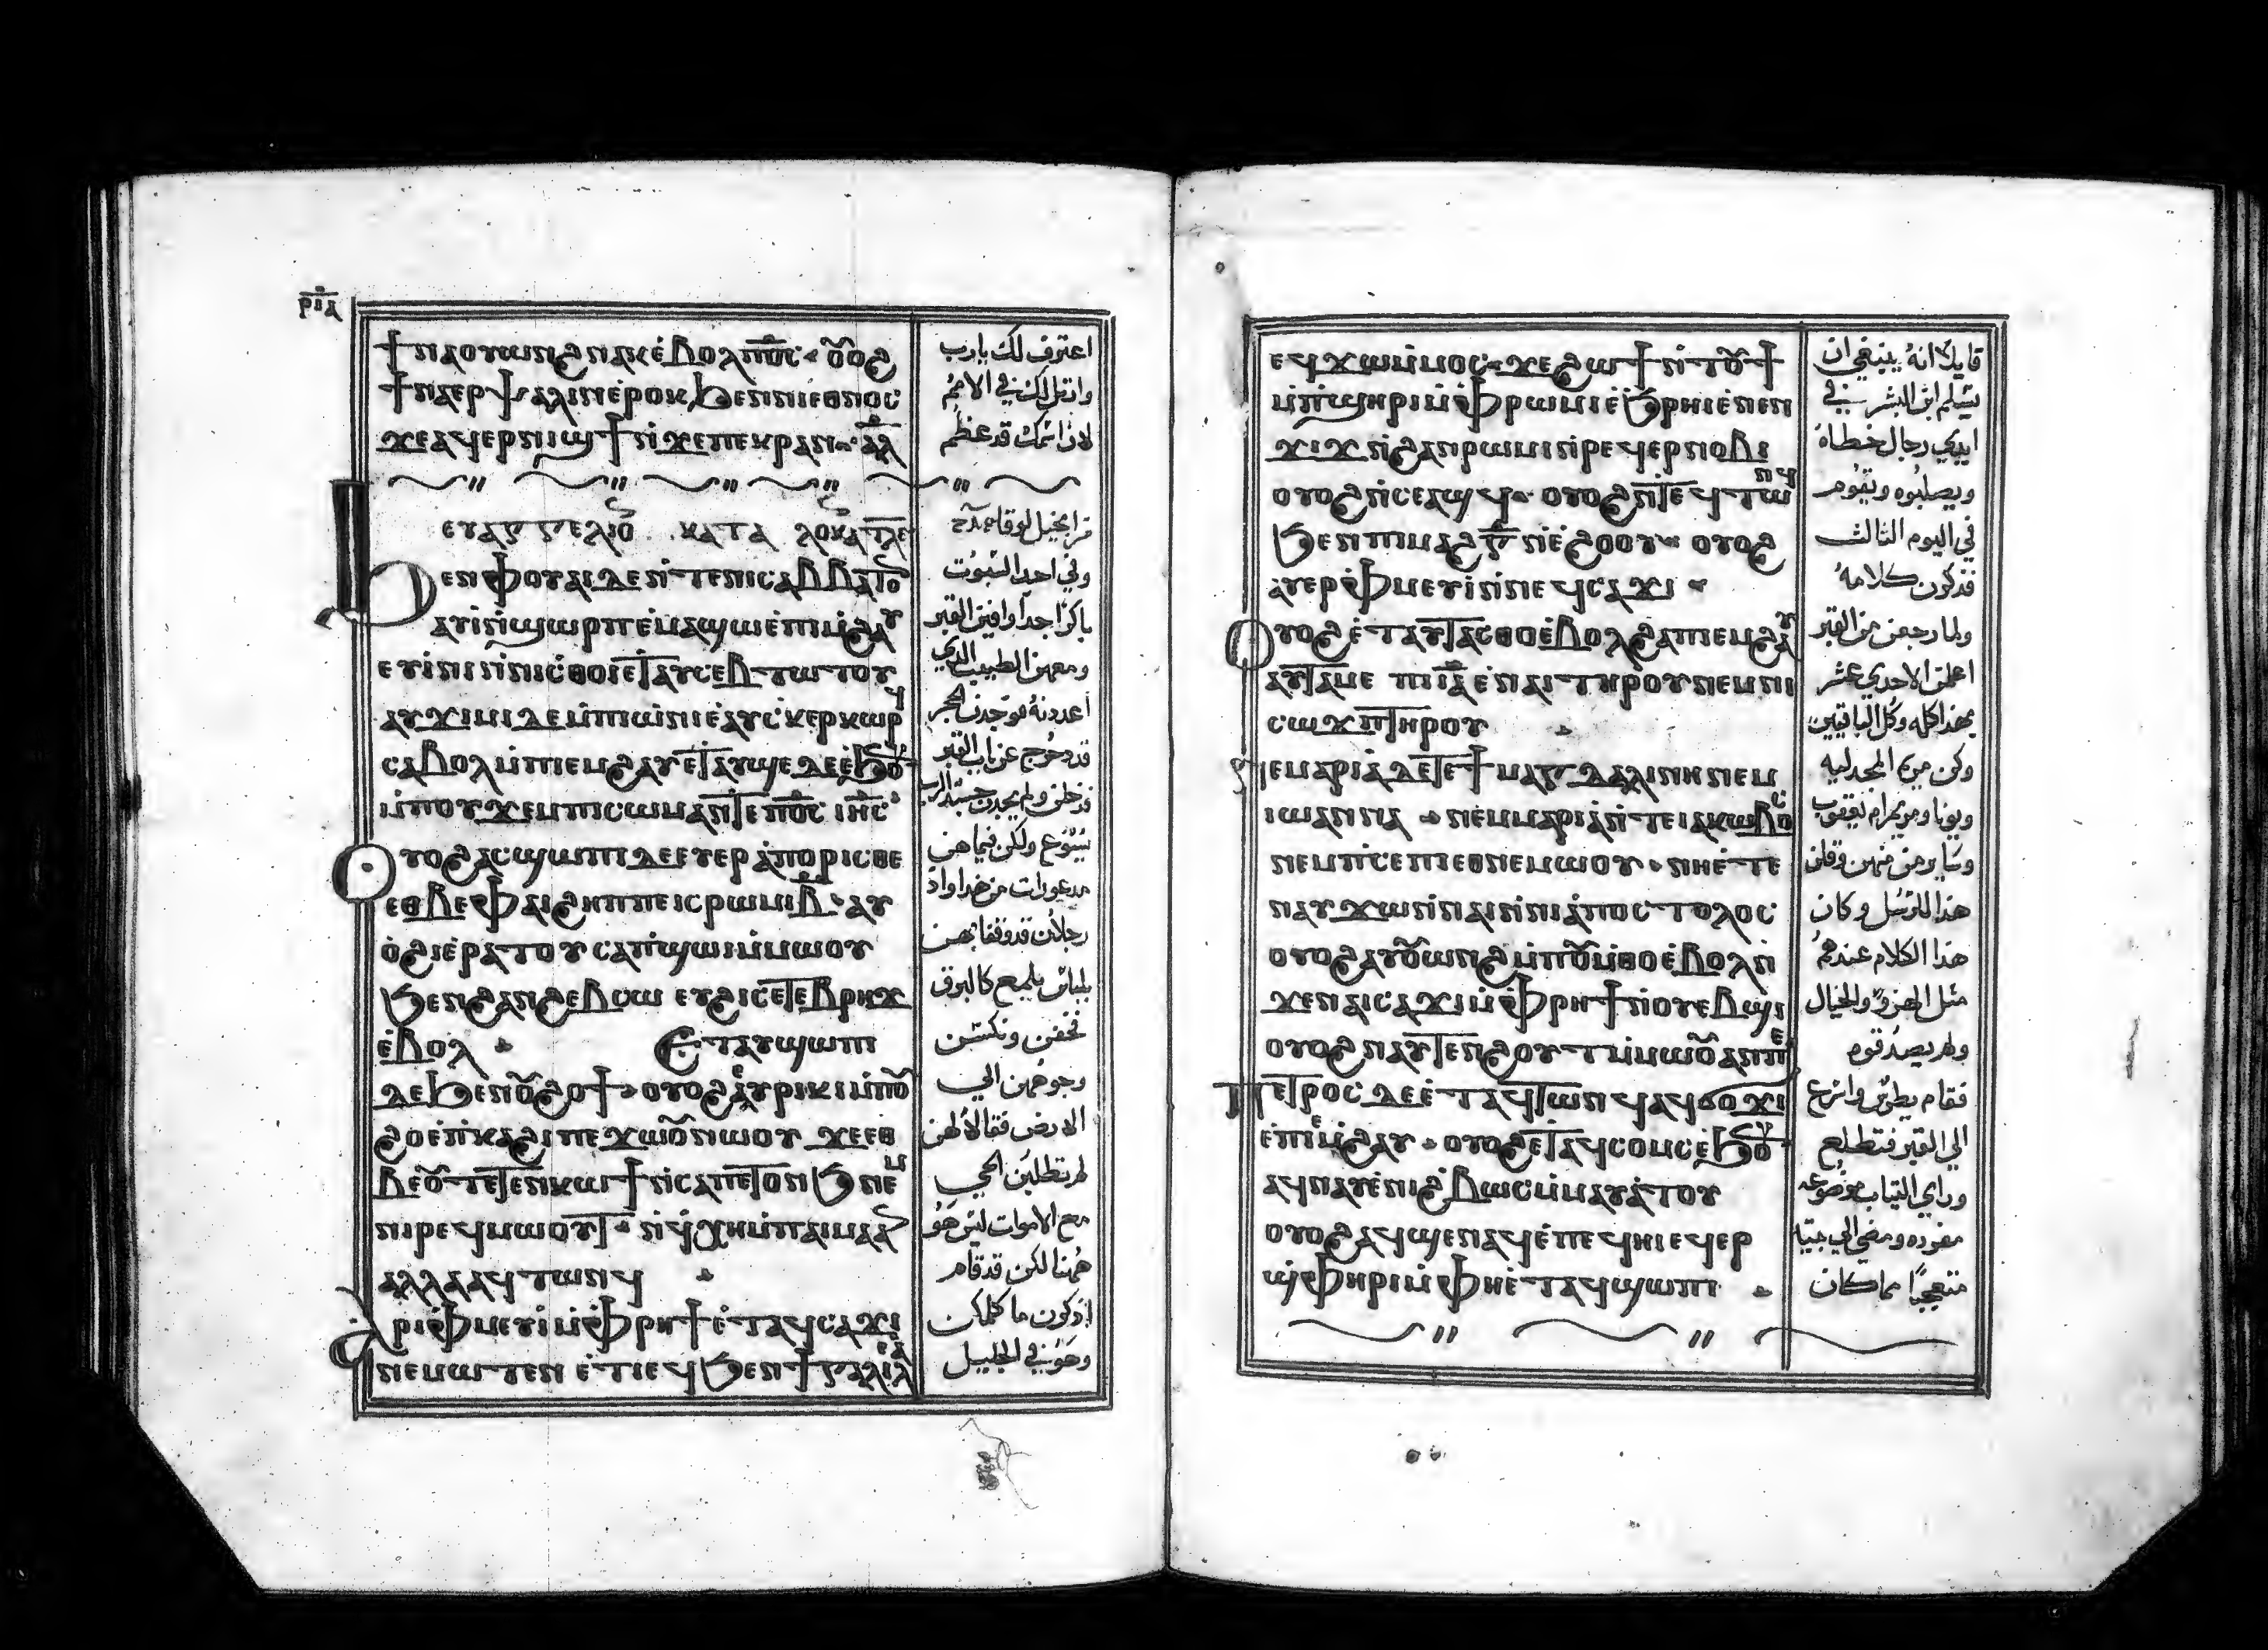 ⲣⲓⲇ
ϯⲛⲁⲟⲩⲱⲛϩⲛⲁⲕⲉⲃⲟⲗⲡⲟⲥ ⲟⲟϩ
ϯⲛⲁⲉⲣⲯⲁⲗⲓⲛⲉⲣⲟⲕϧⲉⲛⲛⲓⲉⲑⲛⲟⲥ
ϫⲉⲁϥⲉⲣⲛⲓϣϯⲛϫⲉⲡⲉⲕⲣⲁⲛ ⲁⲗ
ⲉⲩⲁⲅⲅⲉⲗⲓⲟ ⲕⲁⲧⲁ ⲗⲟⲩⲕⲁ
ϧⲉⲛⲫⲟⲩⲁⲓⲇⲉⲛⲧⲉⲛⲓⲥⲁⲃⲃⲁⲧⲟ
ⲁⲩⲓⲛϣⲱⲣⲡⲉⲙⲁϣⲱⲉⲡⲓⲙϩⲁⲩ
ⲉⲩⲓⲛⲓⲛⲛⲓⲥⲑⲟⲓⲉⲧⲁⲩⲥⲉⲃⲧⲱⲧⲟⲩ
ⲁⲩϫⲓⲙⲓⲇⲉⲙⲡⲓⲱⲛⲓⲉⲁⲩⲥⲕⲉⲣⲕⲱⲣϥ
ⲥⲁⲃⲟⲗⲙⲡⲓⲉⲙϩⲁⲩⲉⲧⲁⲩϣⲉⲇⲉⲉϧⲟ
ⲙⲡⲟⲩϫⲉⲙⲡⲓⲥⲱⲙⲁⲛⲧⲉⲡⲟⲥ ⲓⲏⲥ
ⲟⲩⲟϩⲁⲥϣⲱⲡⲓⲇⲉⲉⲩⲉⲣⲁⲡⲟⲣⲓⲥⲑⲉ
ⲉⲑⲃⲉⲫⲁⲓϩⲏⲡⲡⲉⲓⲥⲣⲱⲙⲓⲃ ⲁⲩ
ⲟϩⲓⲉⲣⲁⲧⲟⲩⲥⲁⲡϣⲱⲓⲙⲙⲱⲟⲩ
ϧⲉⲛϩⲁⲛϩⲉⲃⲥⲱ ⲉⲩϩⲓⲥⲉⲧⲉⲃⲣⲏϫ
ⲉⲃⲟⲗ ⲉⲧⲁⲩϣⲱⲡⲓ
ⲇⲉϧⲉⲛⲟϩⲟϯ ⲟⲩⲟϩⲁⲩⲣⲓⲕⲓⲙⲡⲟ
ϩⲟⲉⲡⲕⲁϩⲓⲡⲉϫⲱⲟⲛⲱⲟⲩ ϫⲉⲉⲑ
ⲃⲉⲟⲧⲉⲧⲉⲛⲕⲱϯⲛⲥⲁⲡⲉⲧⲟⲛϧ ⲛⲉⲙ
ⲛⲓⲣⲉϥⲙⲱⲟⲩⲧ ⲛϥⲭⲏⲙⲡⲁⲓⲙⲁⲁⲛ
ⲁⲗⲗⲁⲁϥⲧⲱⲛϥ
ⲁⲣⲓⲫⲙⲉⲩⲓⲙⲫⲣⲏϯⲉⲧⲁϥⲥⲁϫⲓ
ⲛⲉⲙⲱⲧⲉⲛ ⲉⲧⲓⲉϥϧⲉⲛϯⲅⲁⲗⲓⲗⲉⲁ
اعترف لك يارب
وارتل لك في الامم
لان اسمك قد عظم
من انجيل لوقا
وفي احد السبوت
باكرا جدا وافين القبر
ومعهن الطيب الذي
اعددنه فوجدن الحجر
قد دحرج عن باب القبر
فدخلن ولم يجدن جسد الرب
يسوع وكن فيما هن
رجلان قد وقفا بهن
بلباس يلمع كالبرق
فخفن ونكسن
وجوههن الي
الارض فقالا لهن
لم تطلبن الحي
مع الاموات ليس هو
ههنا لكن قد قام
اذكرن ما كلمكن
وهو في الجليل
ⲉϥϫⲱⲙⲙⲟⲥ ϫⲉϩⲱϯⲛⲧⲟϯ
ⲙⲡϣⲏⲣⲓⲙⲫⲣⲱⲙⲓⲉϧⲣⲏⲓⲉⲛⲉⲛ
ϫⲓϫⲛϩⲁⲛⲣⲱⲙⲓⲛⲣⲉϥⲉⲣⲛⲟⲃⲓ
ⲟⲩⲟϩⲛⲥⲉⲁϣϥ ⲟⲩⲟϩⲛⲧⲉϥⲧⲱⲛϥ
ϧⲉⲛⲡⲓⲙⲁϩⲅⲛⲉϩⲟⲟⲩ ⲟⲩⲟϩ
ⲁⲩⲉⲣⲫⲙⲉⲩⲓⲛⲛⲉϥⲥⲁϫⲓ
ⲟⲩⲟϩⲉⲧⲁⲩⲧⲁⲥⲑⲟⲉⲃⲟⲗϩⲁⲡⲓⲉⲙϩⲁⲩ
ⲁⲩⲧⲁⲙⲉ ⲡⲓⲓⲁⲉⲛⲁⲓⲧⲏⲣⲟⲩⲛⲉⲙⲛⲓ
ⲥⲱϫⲡⲧⲏⲣⲟⲩ
ⲛⲉⲙⲁⲣⲓⲁⲇⲉⲧⲉϯⲙⲁⲅⲇⲁⲗⲓⲛⲏⲛⲉⲙ
ⲓⲱⲁⲛⲛⲁ ⲛⲉⲙⲙⲁⲣⲓⲁⲛⲧⲉⲓⲁⲕⲱⲃⲟⲥ
ⲛⲉⲙⲡⲥⲉⲡⲓⲉⲑⲛⲉⲙⲱⲟⲩ ⲛⲏⲉⲧⲉ
ⲛⲁⲩϫⲱⲛⲛⲁⲓⲛⲛⲓⲁⲡⲟⲥⲧⲟⲗⲟⲥ
ⲟⲩⲟϩⲁⲩⲟⲱⲛϩⲙⲡⲟⲙⲑⲟⲉⲃⲟⲗⲛ
ϫⲉⲛⲁⲓⲥⲁϫⲓⲙⲫⲣⲏϯⲛⲟⲩⲉⲃϣⲓ
ⲟⲩⲟϩⲛⲁⲩⲧⲉⲛϩⲟⲩⲧⲙⲙⲱⲟⲁⲛⲡⲉ
ⲡⲉⲧⲣⲟⲥⲇⲉⲉⲧⲁϥⲧⲱⲛϥⲁϥϭⲟϫⲓ
ⲉⲡⲓⲉⲙϩⲁⲩ ⲟⲩⲟϩⲉⲧⲁϥⲥⲟⲙⲥⲉϧⲟ
ⲁϥⲛⲁⲩⲉⲛⲓϩⲃⲱⲥⲙⲙⲁⲩⲁⲧⲟⲩ
ⲟⲩⲟϩⲁϥϣⲉⲛⲁϥⲉⲡⲉϥⲏⲓⲉϥⲉⲣ
ϣⲫⲏⲣⲓⲙⲫⲏⲉⲧⲁϥϣⲱⲡⲓ
قايلا انه ينبغي ان
يسلم ابن البشر في
ايدي رجال خطاه
ويصلبوه ويقوم
في اليوم الثالث
فذكرن كلامه
ولما رجعن من القبر
اعلمن الاحدي عشر
بهذا كله وكل الباقيين
وكن مريم المجدليه
ويونا ومريم ام يعقوب
وساير من منهن وقلن
هذا للرسل وكان
هذا الكلام عندهم
مثل الهزو والخيال
ولم يصدقوهم
فقام بطرس واسرع
الي القبر فتطلع
وراي الثياب موضوعه
مفرده ومضي الي بيته
متعجبا مما كان